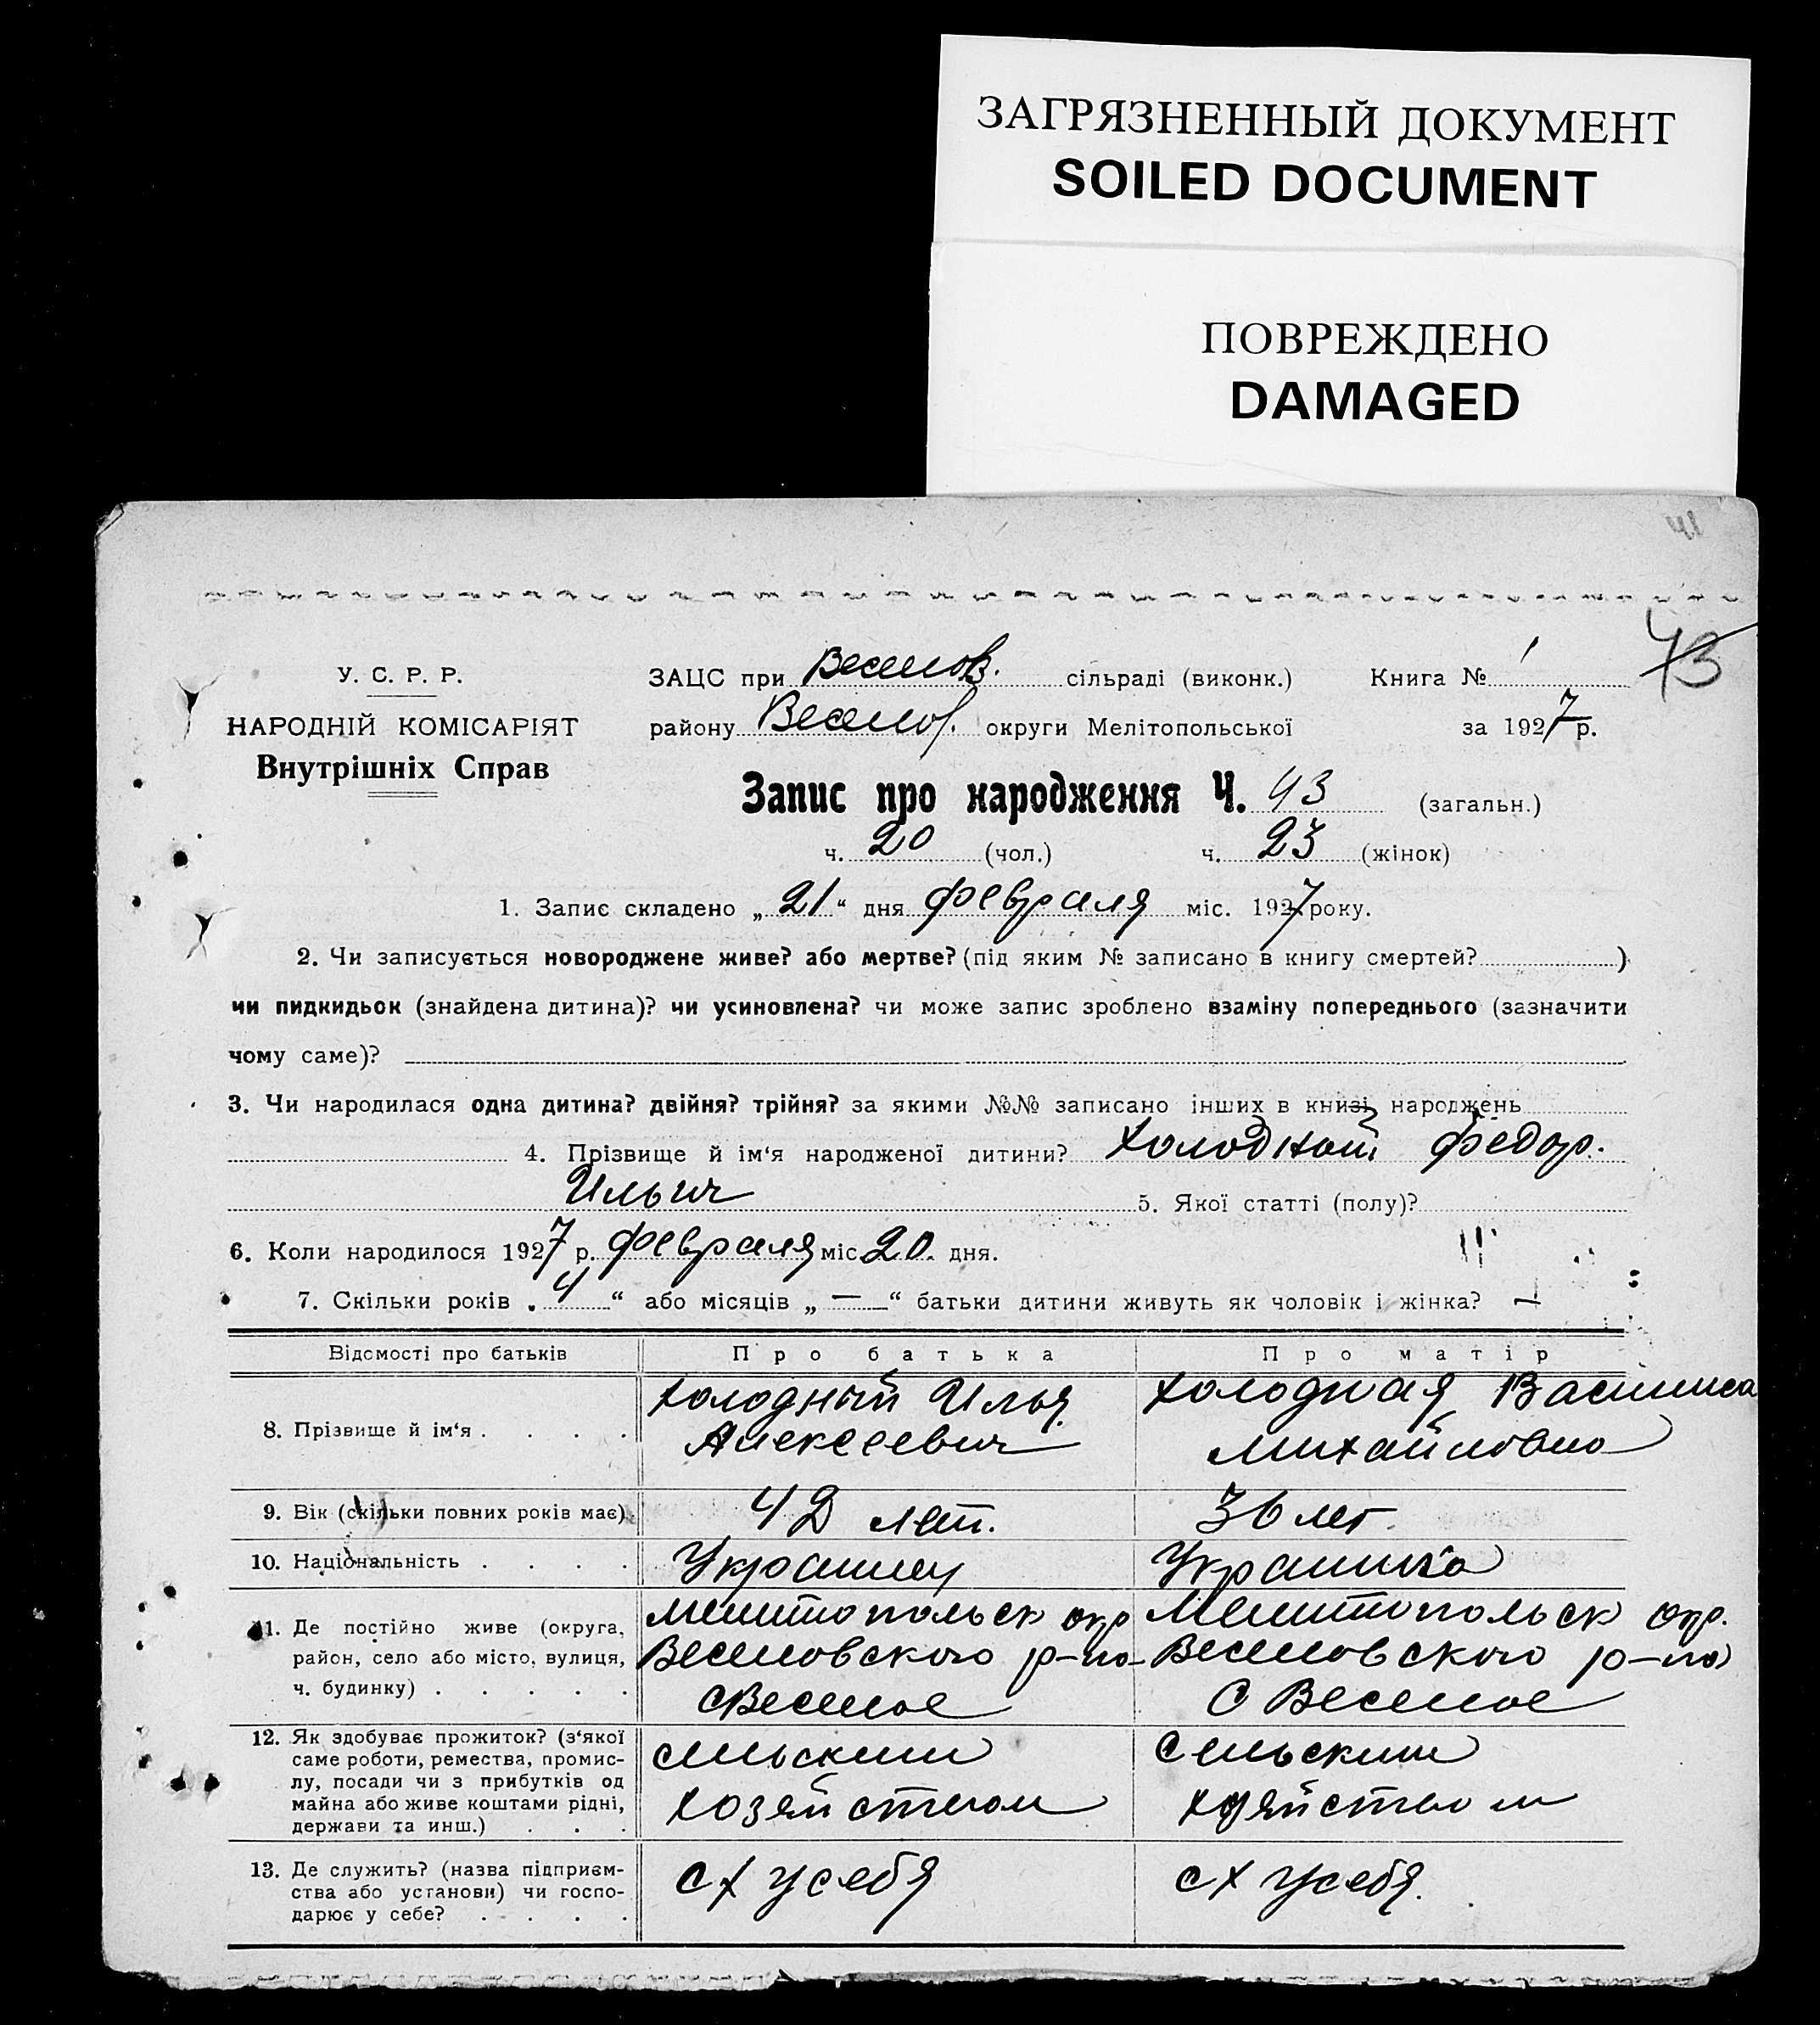 ЗАГРЯЗНЕННЫЙ ДОКУМЕНТ
SOILED DOCUMENT
ПОВРЕЖДЕНО
DAMAGED
41
43
У. С. Р. Р.
НАРОДНІЙ КОМІСАРІЯТ
Внутрішніх Справ
ЗАЦС при Веселов. сільраді (виконк.) Книга № 1
району Веселов. округи Мелітопольської за 1927 р.
Запис про народження Ч. 43 (загальн.)
ч. 20 (чол.) ч. 23 (жінок)
1. Запис складено „21“ дня февраля міс. 1927 року.
2. Чи записується новороджене живе? або мертве? (під яким № записано в книгу смертей? )
чи пидкидьок (знайдена дитина)? чи усиновлена? чи може запис зроблено взаміну попереднього (зазначити
чому саме)?
3. Чи народилася одна дитина? двійня? трійня? за якими №№ записано інших в книзі народжень
4. Прізвище й ім‘я народженої дитини? Холодный Федор.
Ильич 5. Якої статті (полу)?
6. Коли народилося 1927 р. февраля міс 20. дня.
7. Скільки років „4“ або місяців „—“ батьки дитини живуть як чоловік і жінка?
Відомості про батьків Про батька Про матір
8. Прізвище й ім‘я . . . . Холодный Илья Алексеевич Холодная Василиса Михайловна
9. Вік (скільки повних років має) 42 лет. 36 лет.
10. Національність . . . . Украинец Украинка
11. Де постійно живе (округа, Мелитопольск окр Мелитопольск окр.
район, село або місто, вулиця, Веселовского р-на Веселовского р-на
ч. будинку) . . . . . С Веселое С Веселое
12. Як здобуває прожиток? (з‘якої сельским Сельским
саме роботи, ремества, промис-
лу, посади чи з прибутків од
майна або живе коштами рідні, хозяйством хозяйством
держави та инш.) . . .
13. Де служить? (назва підприєм- с х у себя с х у себя.
ства або установи) чи госпо-
дарює у себе? . . . .